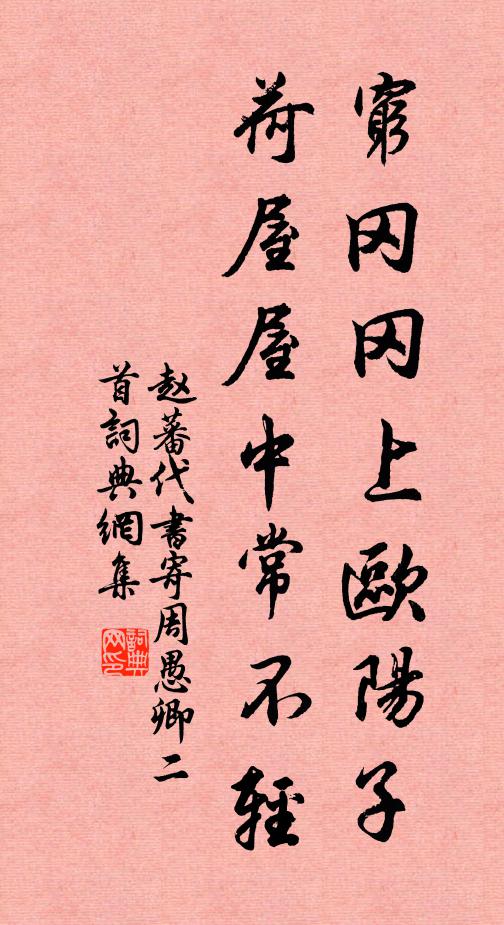 窮冈冈上歐陽子
荷屋屋中常不輕
赵蕃代書寄周愚卿二
首詞典網集
詞典网印